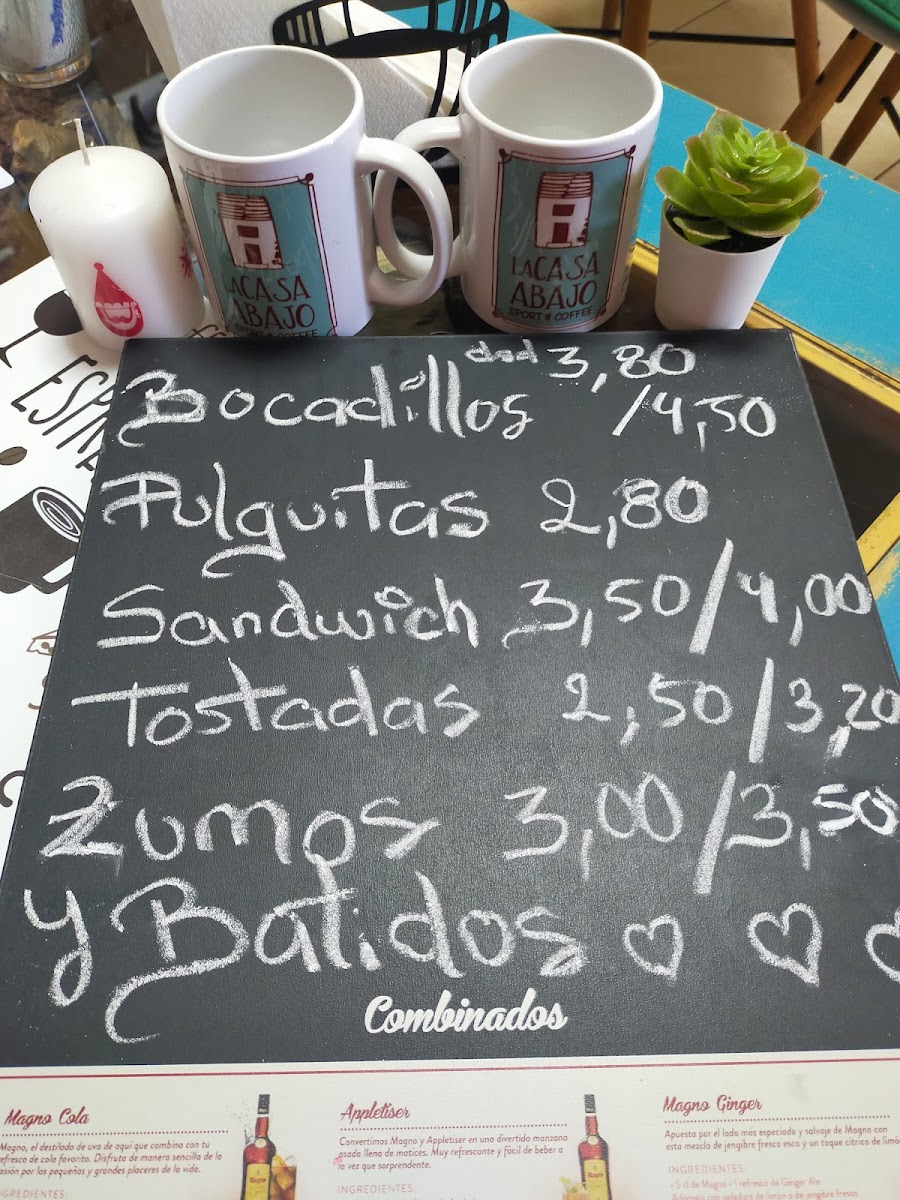 LA CASA
ABAJO
SPORT & COFFEE
LA CASA
ABAJO
SPORT & COFFEE
Bocadillos dsd 3,80
/4,50
Pulguitas 2,80
Sandwich 3,50/4,00
Tostadas 2,50/3,20
Zumos 3,00/3,50
y Batidos
Combinados
Magno Cola
Magno, el destilado de uva de aquí que combina con tu
refresco de cola favorito. Disfruta de manera sencilla de la
pasión por los pequeños y grandes placeres de la vida.
INGREDIENTES:
Appletiser
Convertimos Magno y Appletiser en una divertida manzana
asada llena de matices. Muy refrescante y fácil de beber a
la vez que sorprendente.
INGREDIENTES:
Magno Ginger
Apuesta por el lado más especiado y salvaje de Magno con
esta mezcla de jengibre fresco esco y un toque cítrico de limó
INGREDIENTES:
• 5 cl de Magno • 1 refresco de Ginger Ale